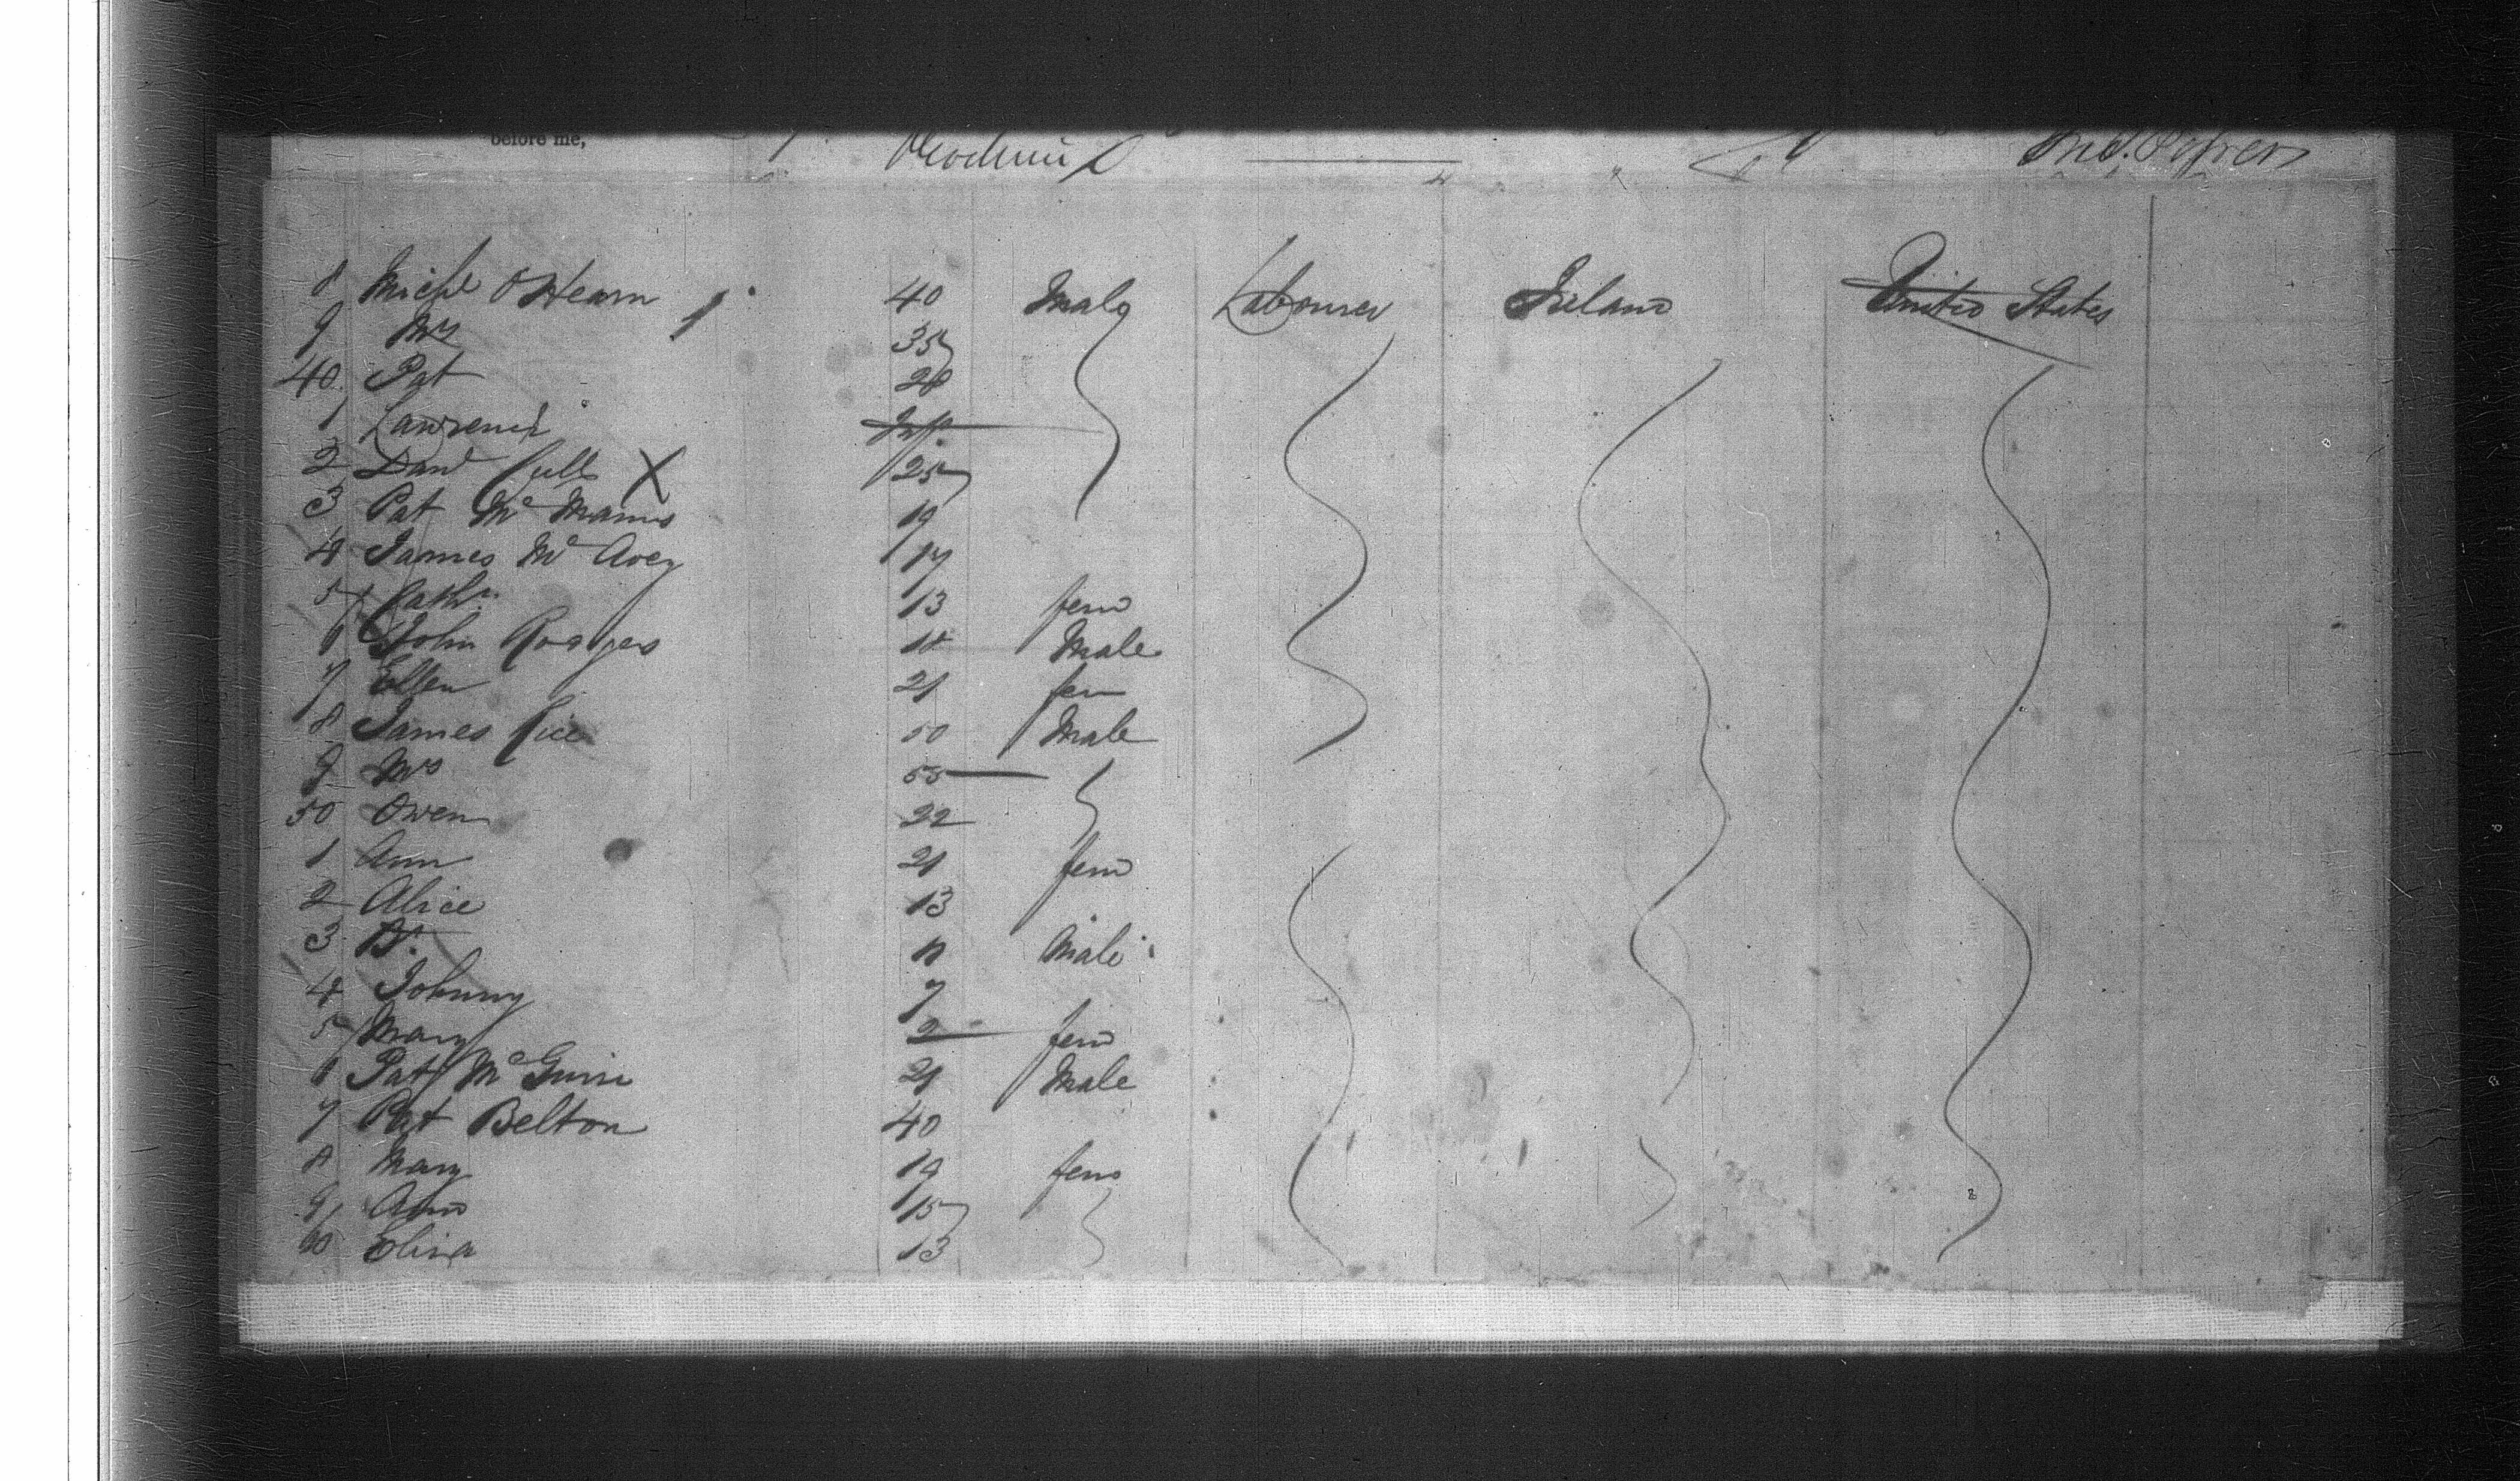 before me,
8 Michl O'Hearn 40 Male Labourer Ireland United States
9 Mrs 35
40 Pat 20
1 Lawrence Inft.
2 Danl 25
3 Pat McManus 19
4 James McAvey 17
5 Cathn. 13 fem
6 John Rodgers 18 Male
7 Ellen 21 fem
8 James Rice 50 Male
9 Mrs 55
50 Owen 22
1 Ann 21 fem
2 Alice 13
3 11 Male
4 Johnny 7
5 Mary 2 fem
6 Pat McGuire 21 Male
7 Pat Belton 40
8 Mary 19 fem
9 Ann 15
60 Eliza 13